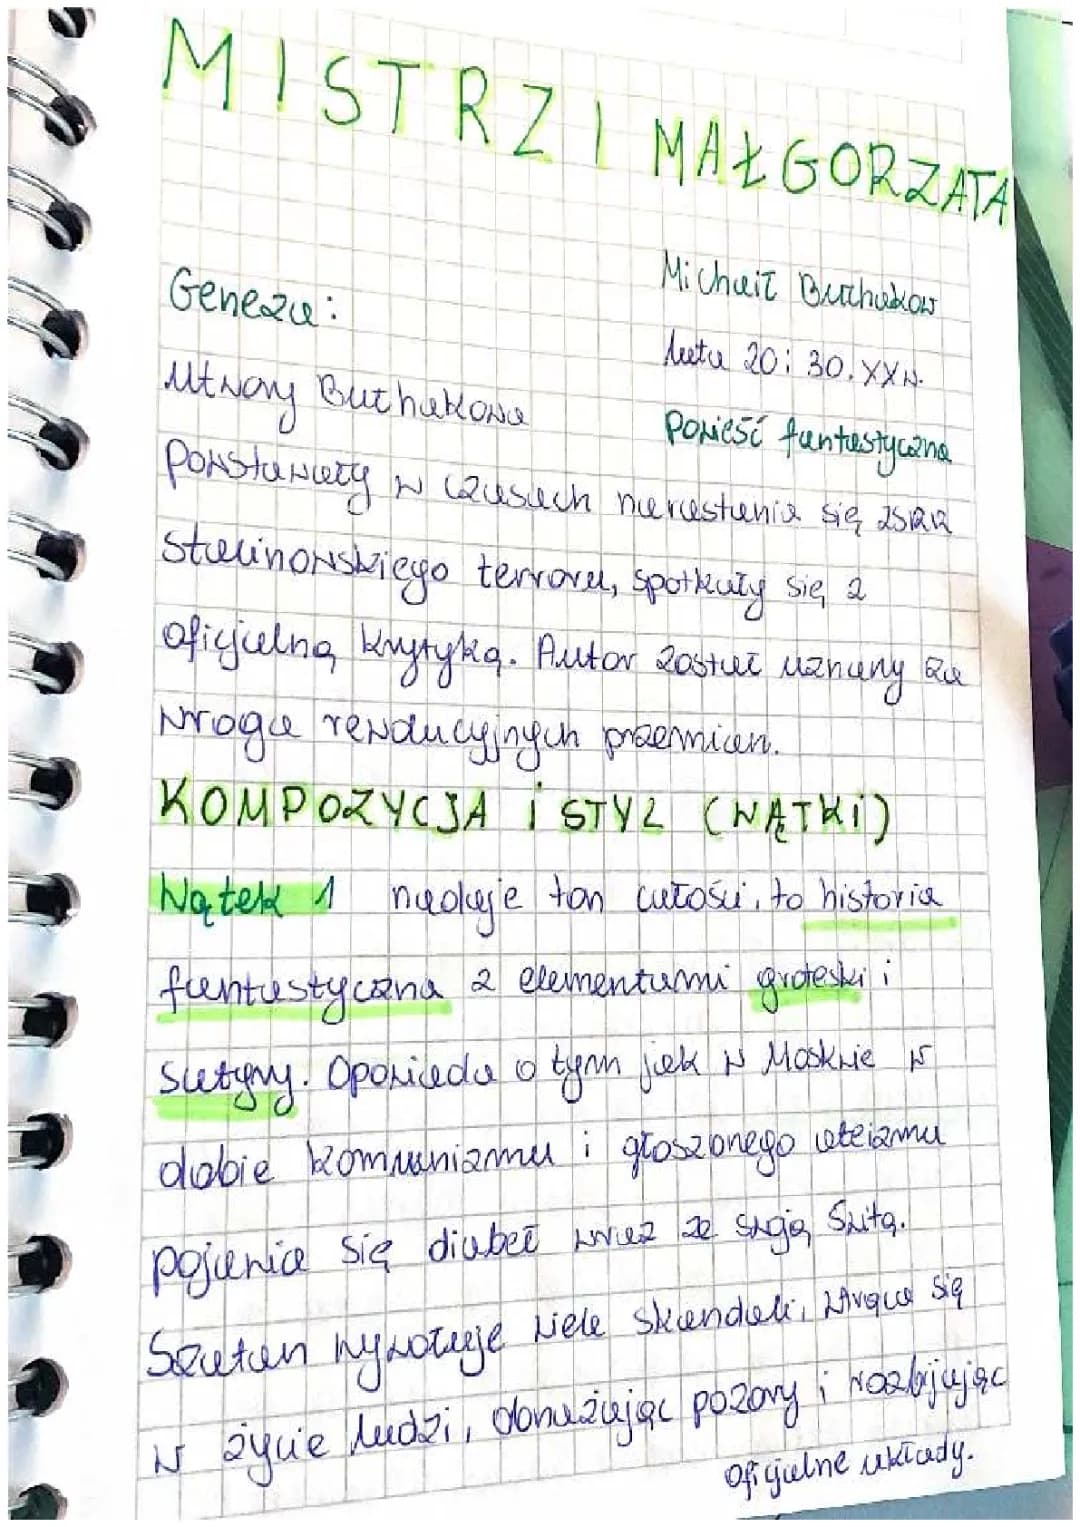 MISTRZ I MAŁGORZATA
Michaił Bułhakow
Geneza:
lata 20 i 30. XX w.
Utwory Bułhakowa
Powieść fantastyczna
powstawały w czasach narastania się ZSRR
stalinowskiego terroru, spotkały się z
oficjalną krytyką. Autor został uznany za
wroga rewolucyjnych przemian.
KOMPOZYCJA i STYL (WĄTKi)
Wątek 1 nadaje ton całości, to historia
fantastyczna z elementami groteski i
satyry. Opowiada o tym jak w Moskwie w
dobie komunizmu i głoszonego ateizmu
pojawia się diabeł wraz ze swoją świtą.
Szatan wywołuje wiele skandali, wtrąca się
w życie ludzi, obnażając pozory i rozbijając
oficjalne układy.